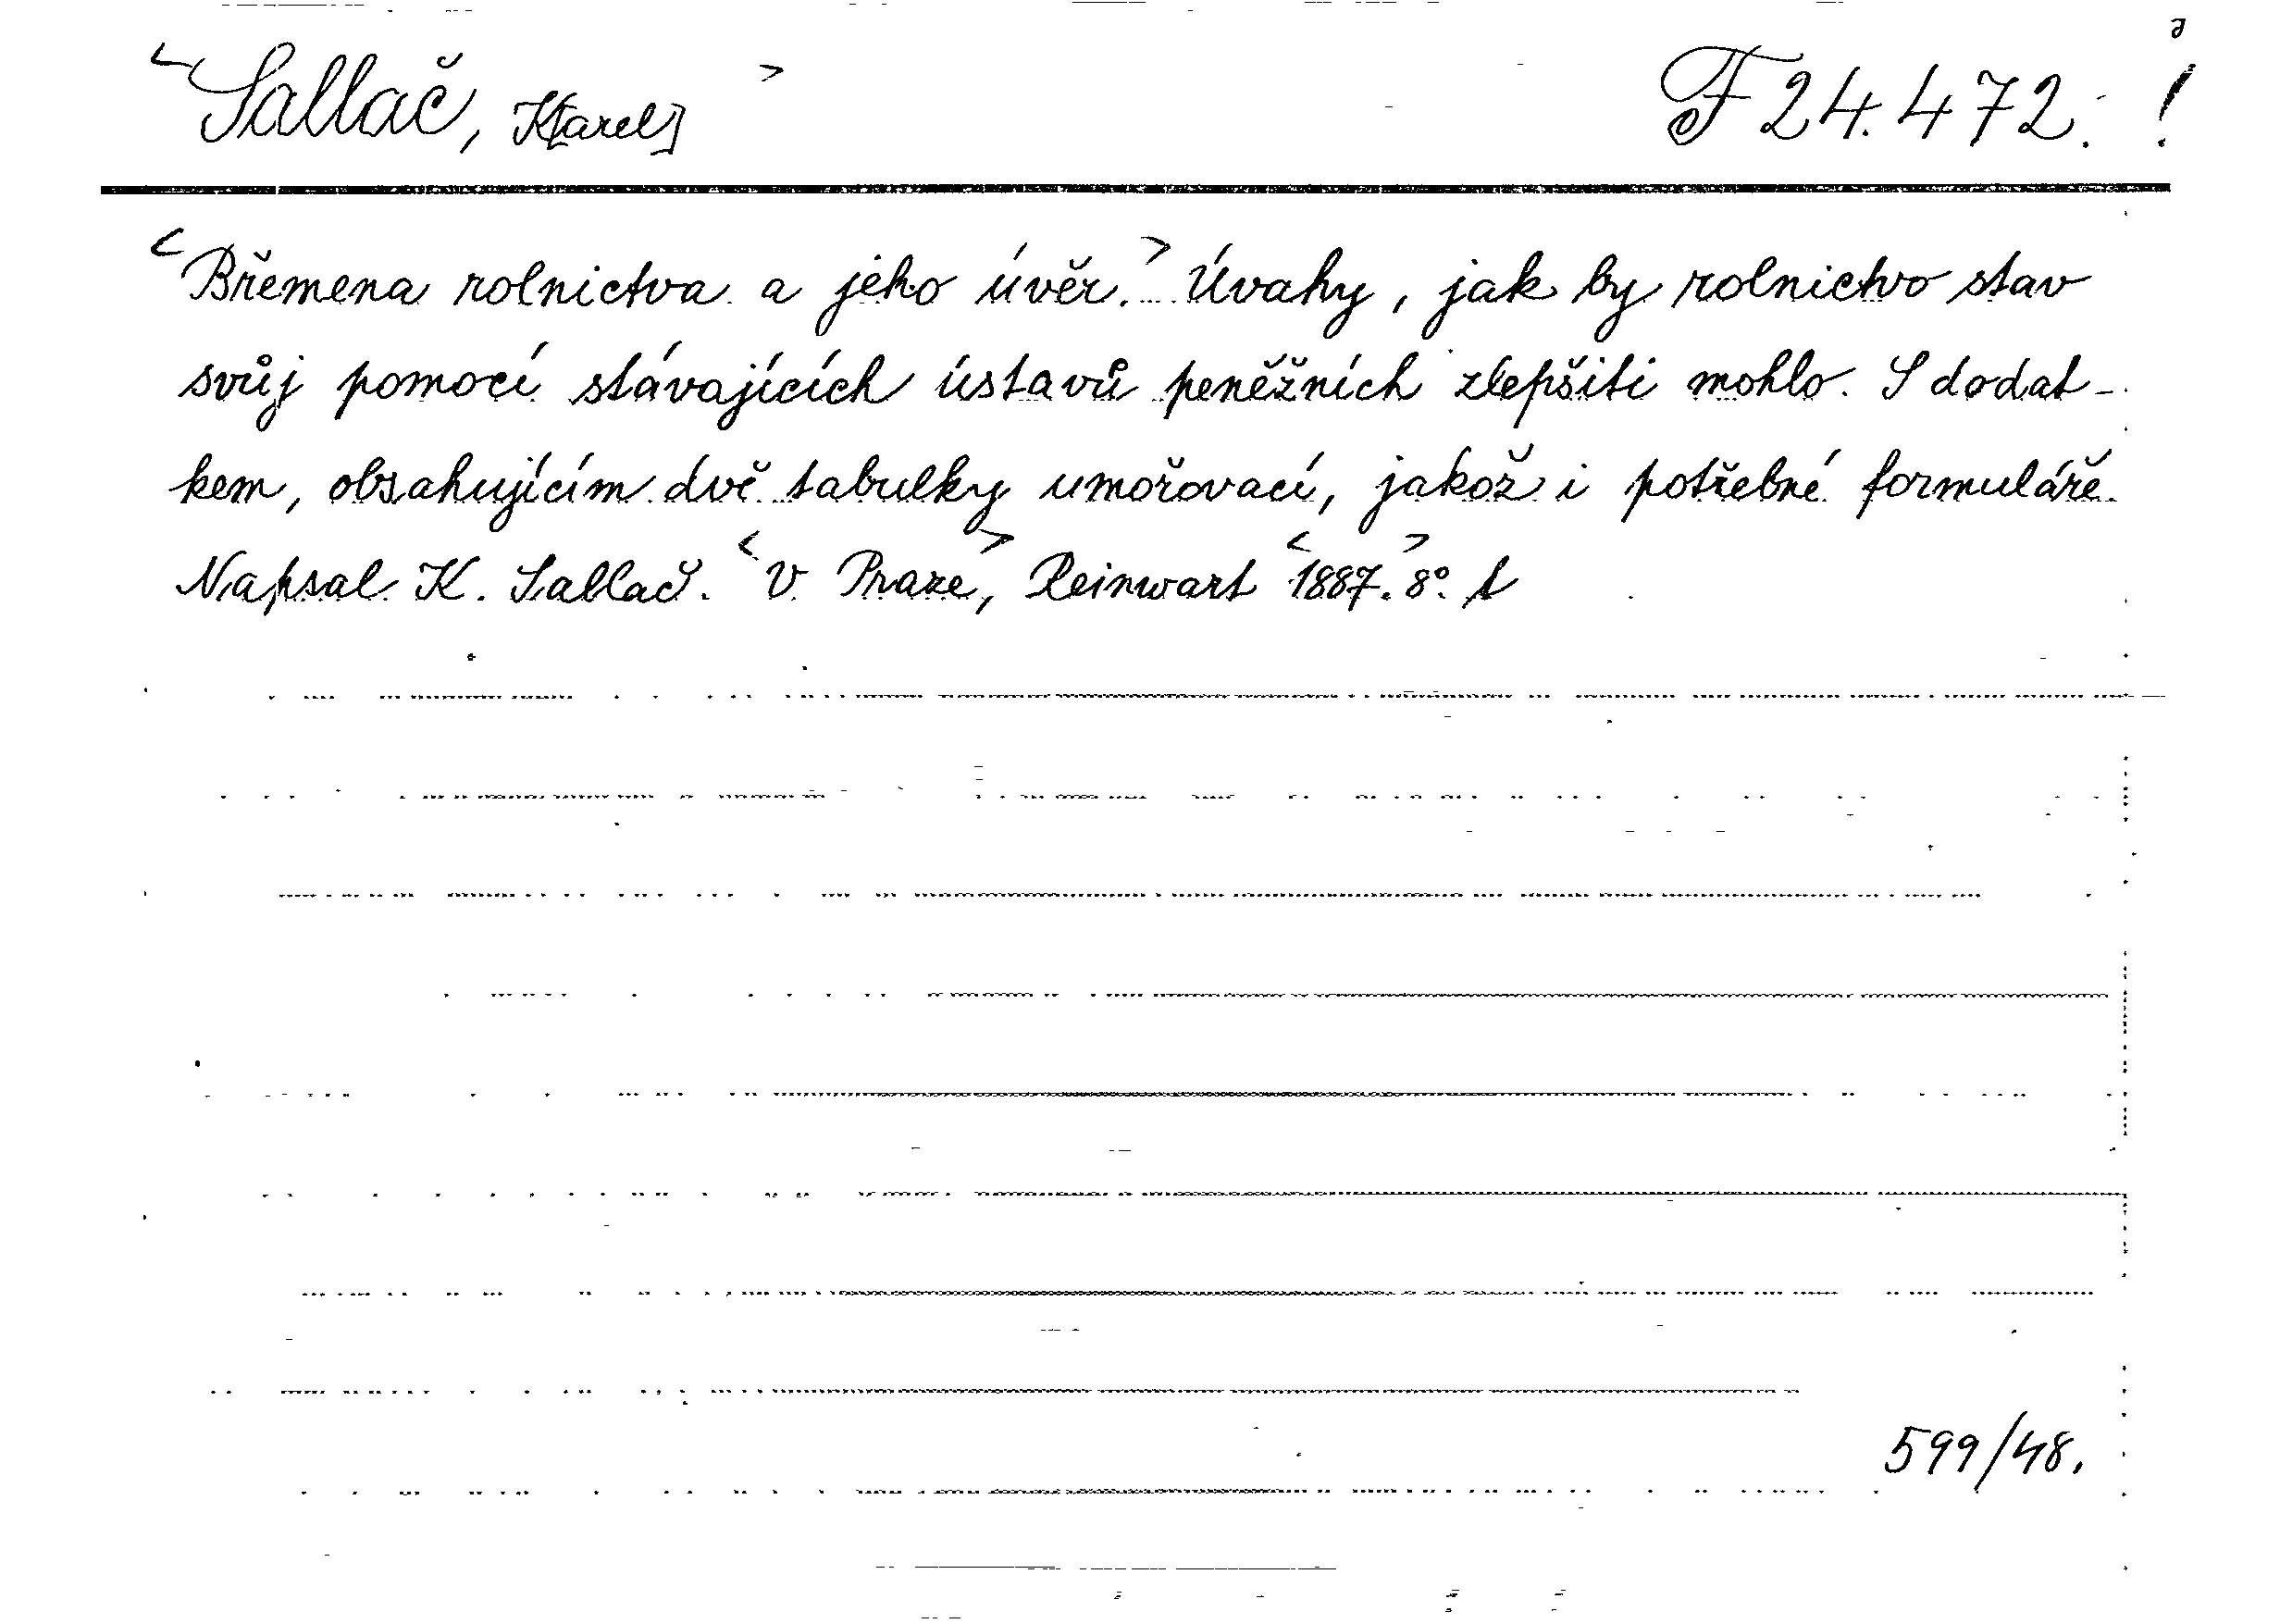 <Sallač, K[arel]> F 24.472. !
<Břemena rolnictva a jeho úvěr.> Úvahy, jak by rolnictvo stav
svůj pomocí stávajících ústavů peněžních zlepšiti mohlo. S dodat-
kem, obsahujícím dvě tabulky umořovací, jakož i potřebné formuláře.
Napsal K. Sallač. <V Praze>, Reinwart <1887.> 8°.
599/48.